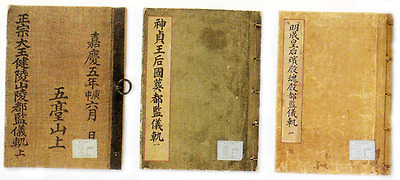 嘉慶五年庚申六月 日
五臺山上
正宗大王健陵山陵都監儀軌 上
神貞王后國葬都監儀軌 一
明成皇后殯殿魂殿都監儀軌 一